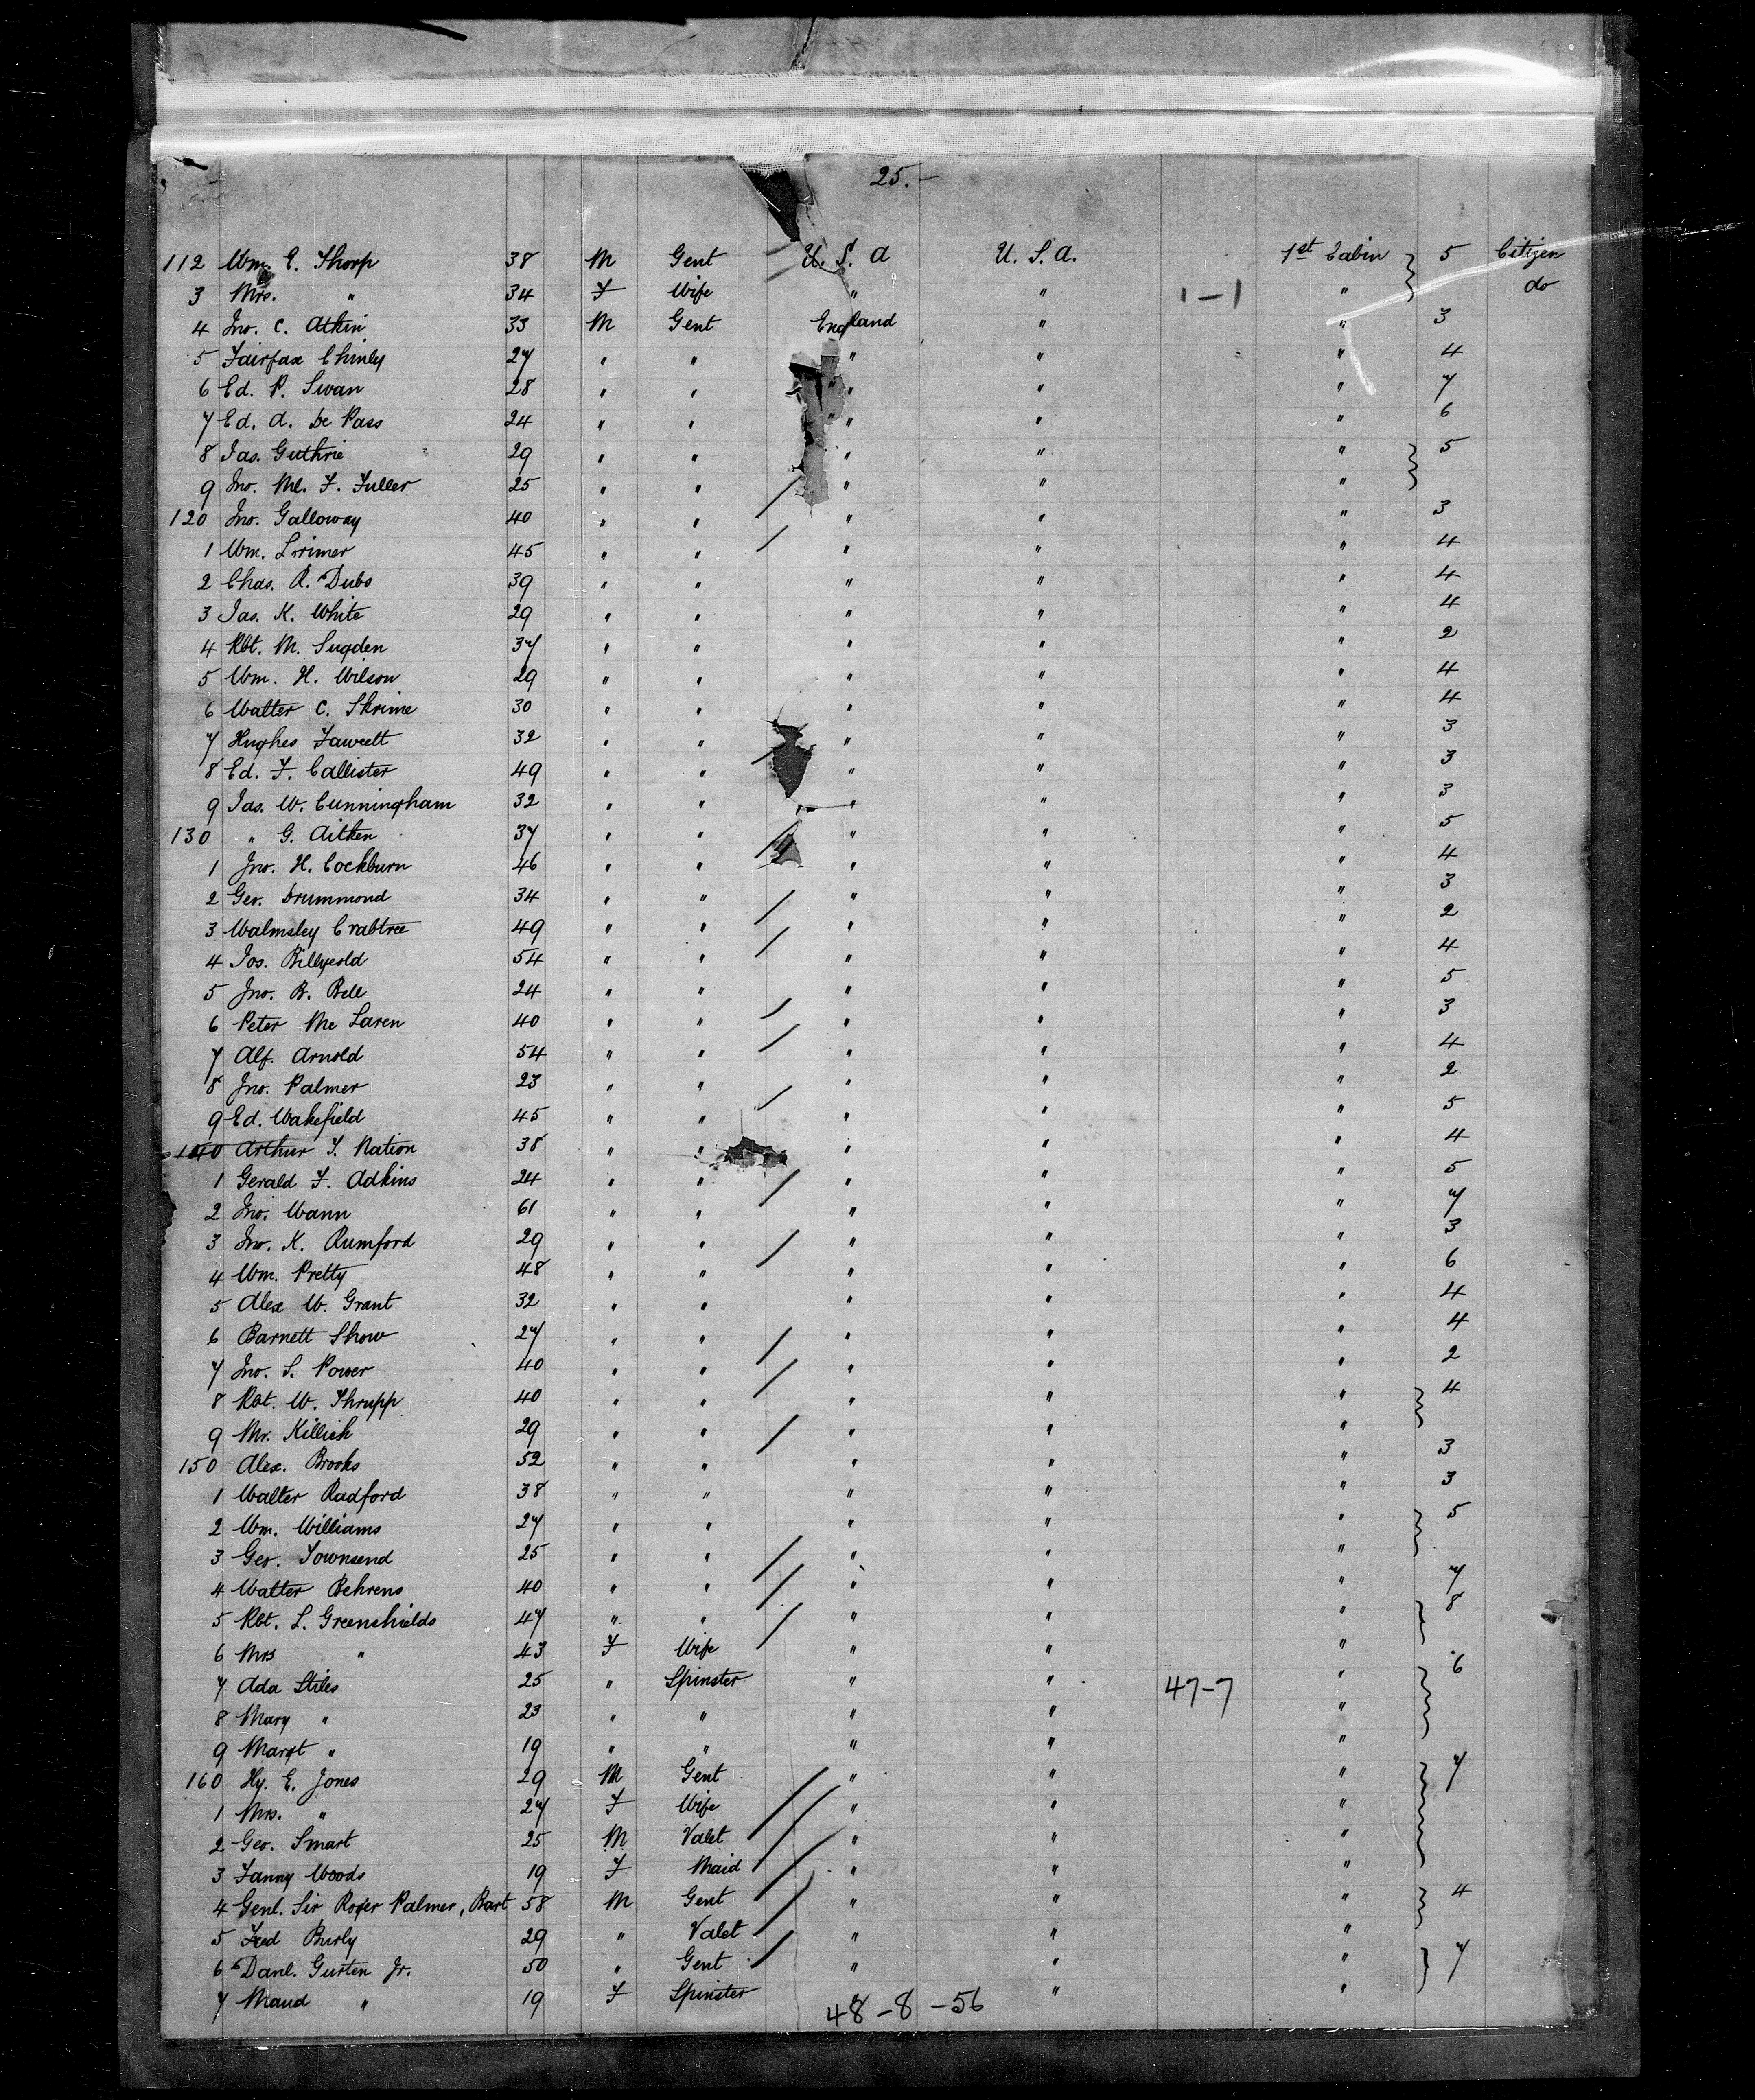 25.-
112 Wm. E. Thorp 38 M Gent U. S. A U. S. A. 1st Cabin 5 Citizen
3 Mrs. " 34 F Wife " " 1-1 " do
4 Jno. C. Atkin 33 M Gent England " " 3
5 Fairfax Chinley 27 " " " " " 4
6 Ed. P. Swan 28 " " " " " 7
7 Ed. A. De Pass 24 " " " " " 6
8 Jas. Guthrie 29 " " " " " 5
9 Jno. Ml. F. Fuller 25 " " " " "
120 Jno. Galloway 40 " " " " " 3
1 Wm. Lorimer 45 " " " " " 4
2 Chas. R. Dubs 39 " " " " " 4
3 Jas. K. White 29 " " " " " 4
4 Rbt. M. Sugden 37 " " " " " 2
5 Wm. H. Wilson 29 " " " " " 4
6 Walter C. Skrime 30 " " " " " 4
7 Hughes Fawcett 32 " " " " " 3
8 Ed. F. Callister 49 " " " " " 3
9 Jas. W. Cunningham 32 " " " " " 3
130 " G. Aitken 37 " " " " " 5
1 Jno. H. Cockburn 46 " " " " " 4
2 Geo. Drummond 34 " " " " " 3
3 Walmsley Crabtree 49 " " " " " 2
4 Jos. Billyeold 54 " " " " " 4
5 Jno. B. Bell 24 " " " " " 5
6 Peter Mc Laren 40 " " " " " 3
7 Alf. Arnold 54 " " " " " 4
8 Jno. Palmer 23 " " " " " 2
9 Ed. Wakefield 45 " " " " " 5
140 Arthur T. Nation 38 " " " " " 4
1 Gerald F. Adkins 24 " " " " " 5
2 Jno. Wann 61 " " " " " 7
3 Jno. K. Rumford 29 " " " " " 3
4 Wm. Pretty 48 " " " " " 6
5 Alex W. Grant 32 " " " " " 4
6 Barnett Show 27 " " " " " 4
7 Jno. S. Power 40 " " " " " 2
8 Rbt. W. Thrupp 40 " " " " " 4
9 Mr. Killick 29 " " " " "
150 Alex. Brooks 52 " " " " " 3
1 Walter Radford 38 " " " " " 3
2 Wm. Williams 27 " " " " " 5
3 Geo. Townsend 25 " " " " "
4 Walter Behrens 40 " " " " " 7
5 Rbt. L. Greenshields 47 " " " " " 8
6 Mrs " 43 F Wife " " "
7 Ada Stiles 25 " Spinster " " 47-7 " 6
8 Mary " 23 " " " " "
9 Margt " 19 " " " " "
160 Hy. E. Jones 29 M Gent " " " 7
1 Mrs. " 27 F Wife " " "
2 Geo. Smart 25 M Valet " " "
3 Fanny Woods 19 F Maid " " "
4 Genl. Sir Roger Palmer, Bart 58 M Gent " " " 4
5 Fred Burly 29 " Valet " " "
6 Danl. Gurten Jr. 50 " Gent " " " 7
7 Maud " 19 F Spinster " "
48-8-56